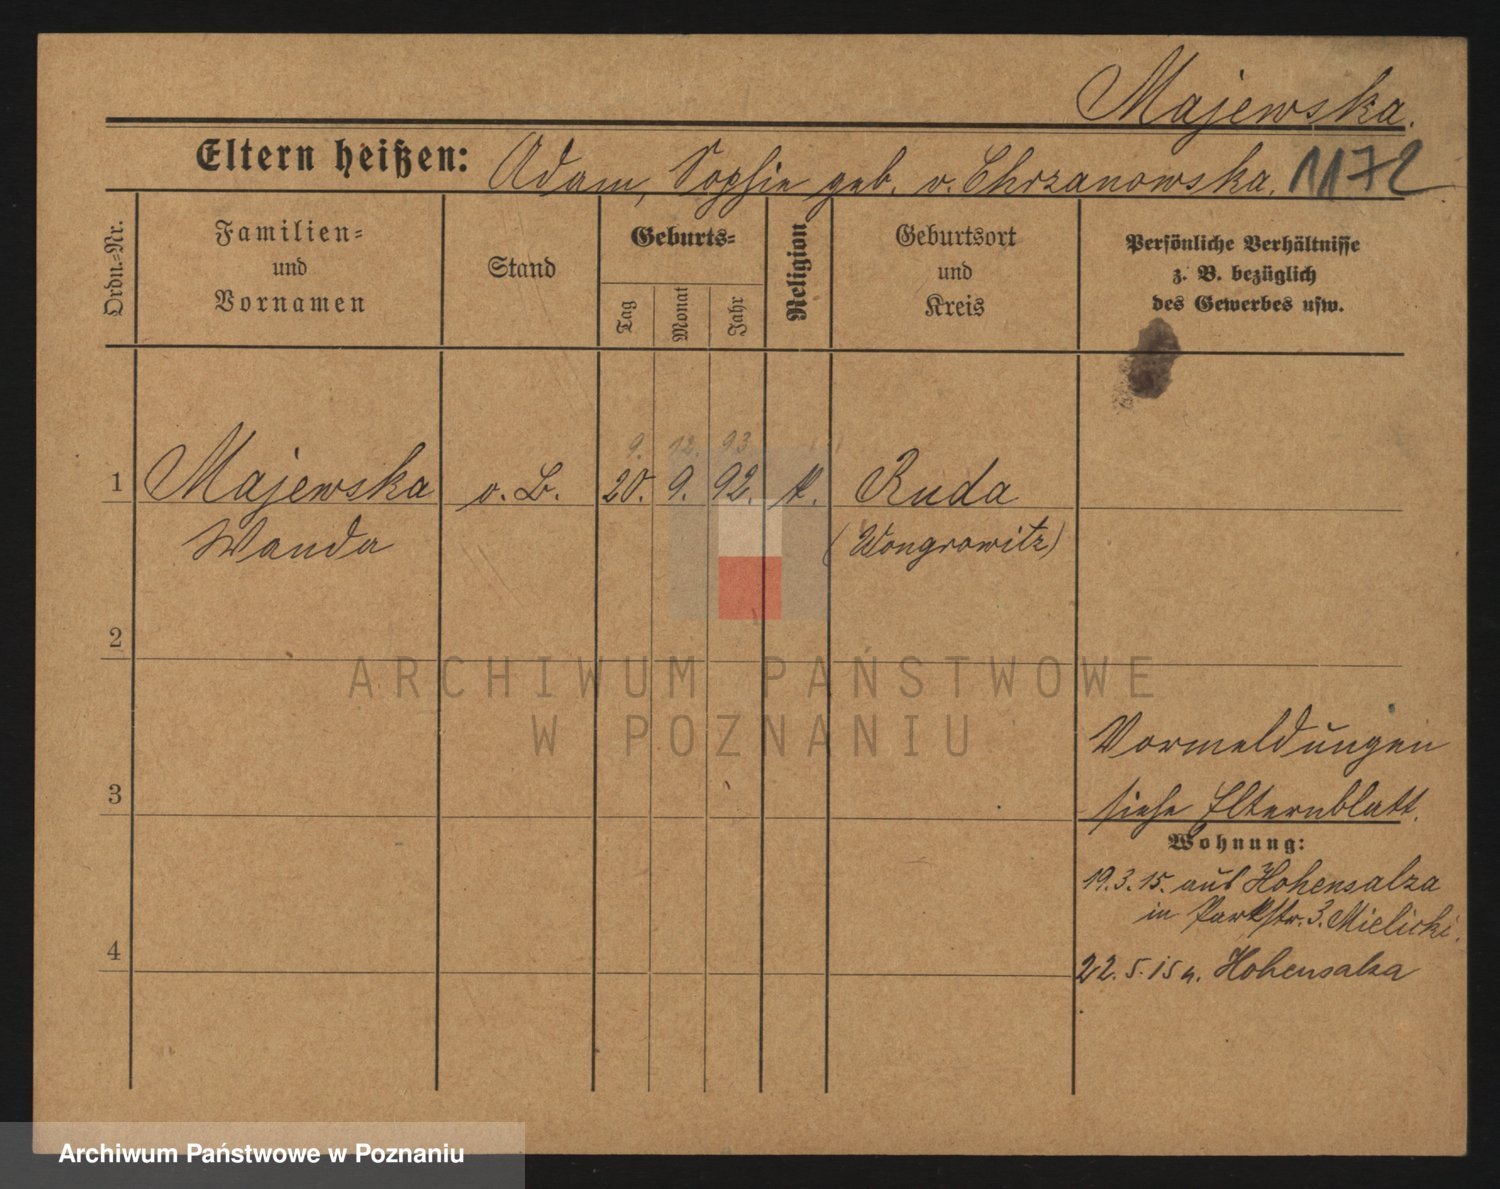 Majewska.
Eltern heißen: Adam, Sophie geb. v. Chrzanowska. 1172
Ordn.=Nr.
Familien=
und
Vornamen
Stand
Geburts=
Tag
Monat
Jahr
Religion
Geburtsort
und
Kreis
Persönliche Verhältnisse
z. B. bezüglich
des Gewerbes usw.
9. 12. 93
1 Majewska o. B. 20. 9. 92. k. Ruda
Wanda (Wongrowitz)
2
ARCHIWUM PAŃSTWOWE
W POZNANIU
Vormeldungen
3 siehe Elternblatt.
Wohnung:
19.3.15. aus Hohensalza
in Parkstr. 3. Mielicki.
4 22.5.15 n. Hohensalza
Archiwum Państwowe w Poznaniu